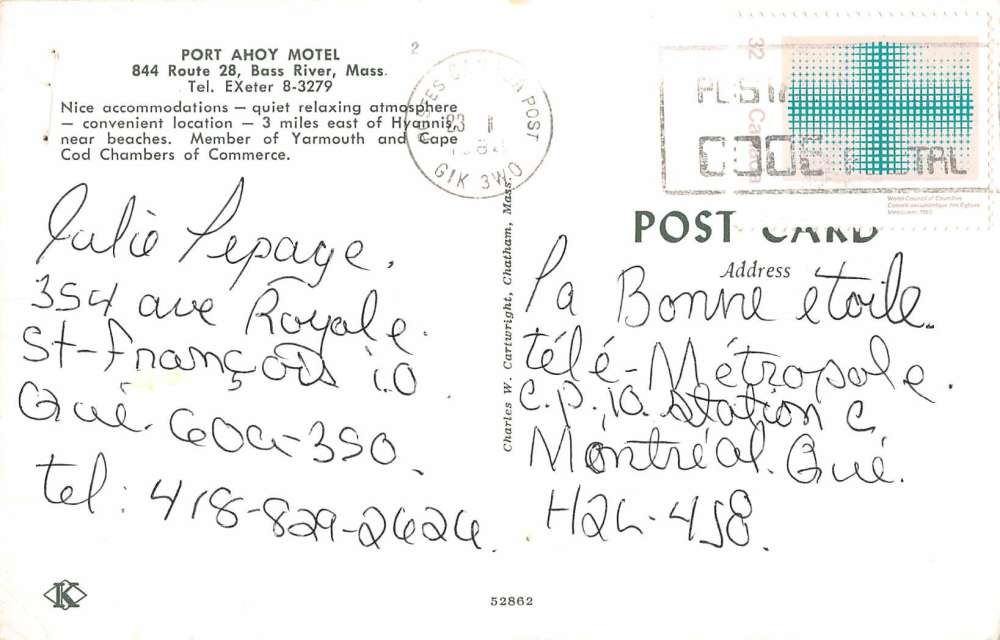 PORT AHOY MOTEL
844 Route 28, Bass River, Mass.
Tel. EXeter 8-3279
Nice accommodations — quiet relaxing atmosphere
— convenient location — 3 miles east of Hyannis,
near beaches. Member of Yarmouth and Cape
Cod Chambers of Commerce.
Julie Lepage.
354 ave Royale.
St-François i.O
Qué. GOA-3SO.
tel: 418-829-2626.
K
52862
Charles W. Cartwright, Chatham, Mass.
2
POST
23 I
G1K 3W0
32 Canada
CODE POSTAL
World Council of Churches
Conseil oecuménique des Églises
Vancouver, 1983
POST CARD
Address
La Bonne étoile.
télé-Métropole.
C.P. 10. station C,
Montréal. Qué.
H2L-4S8.